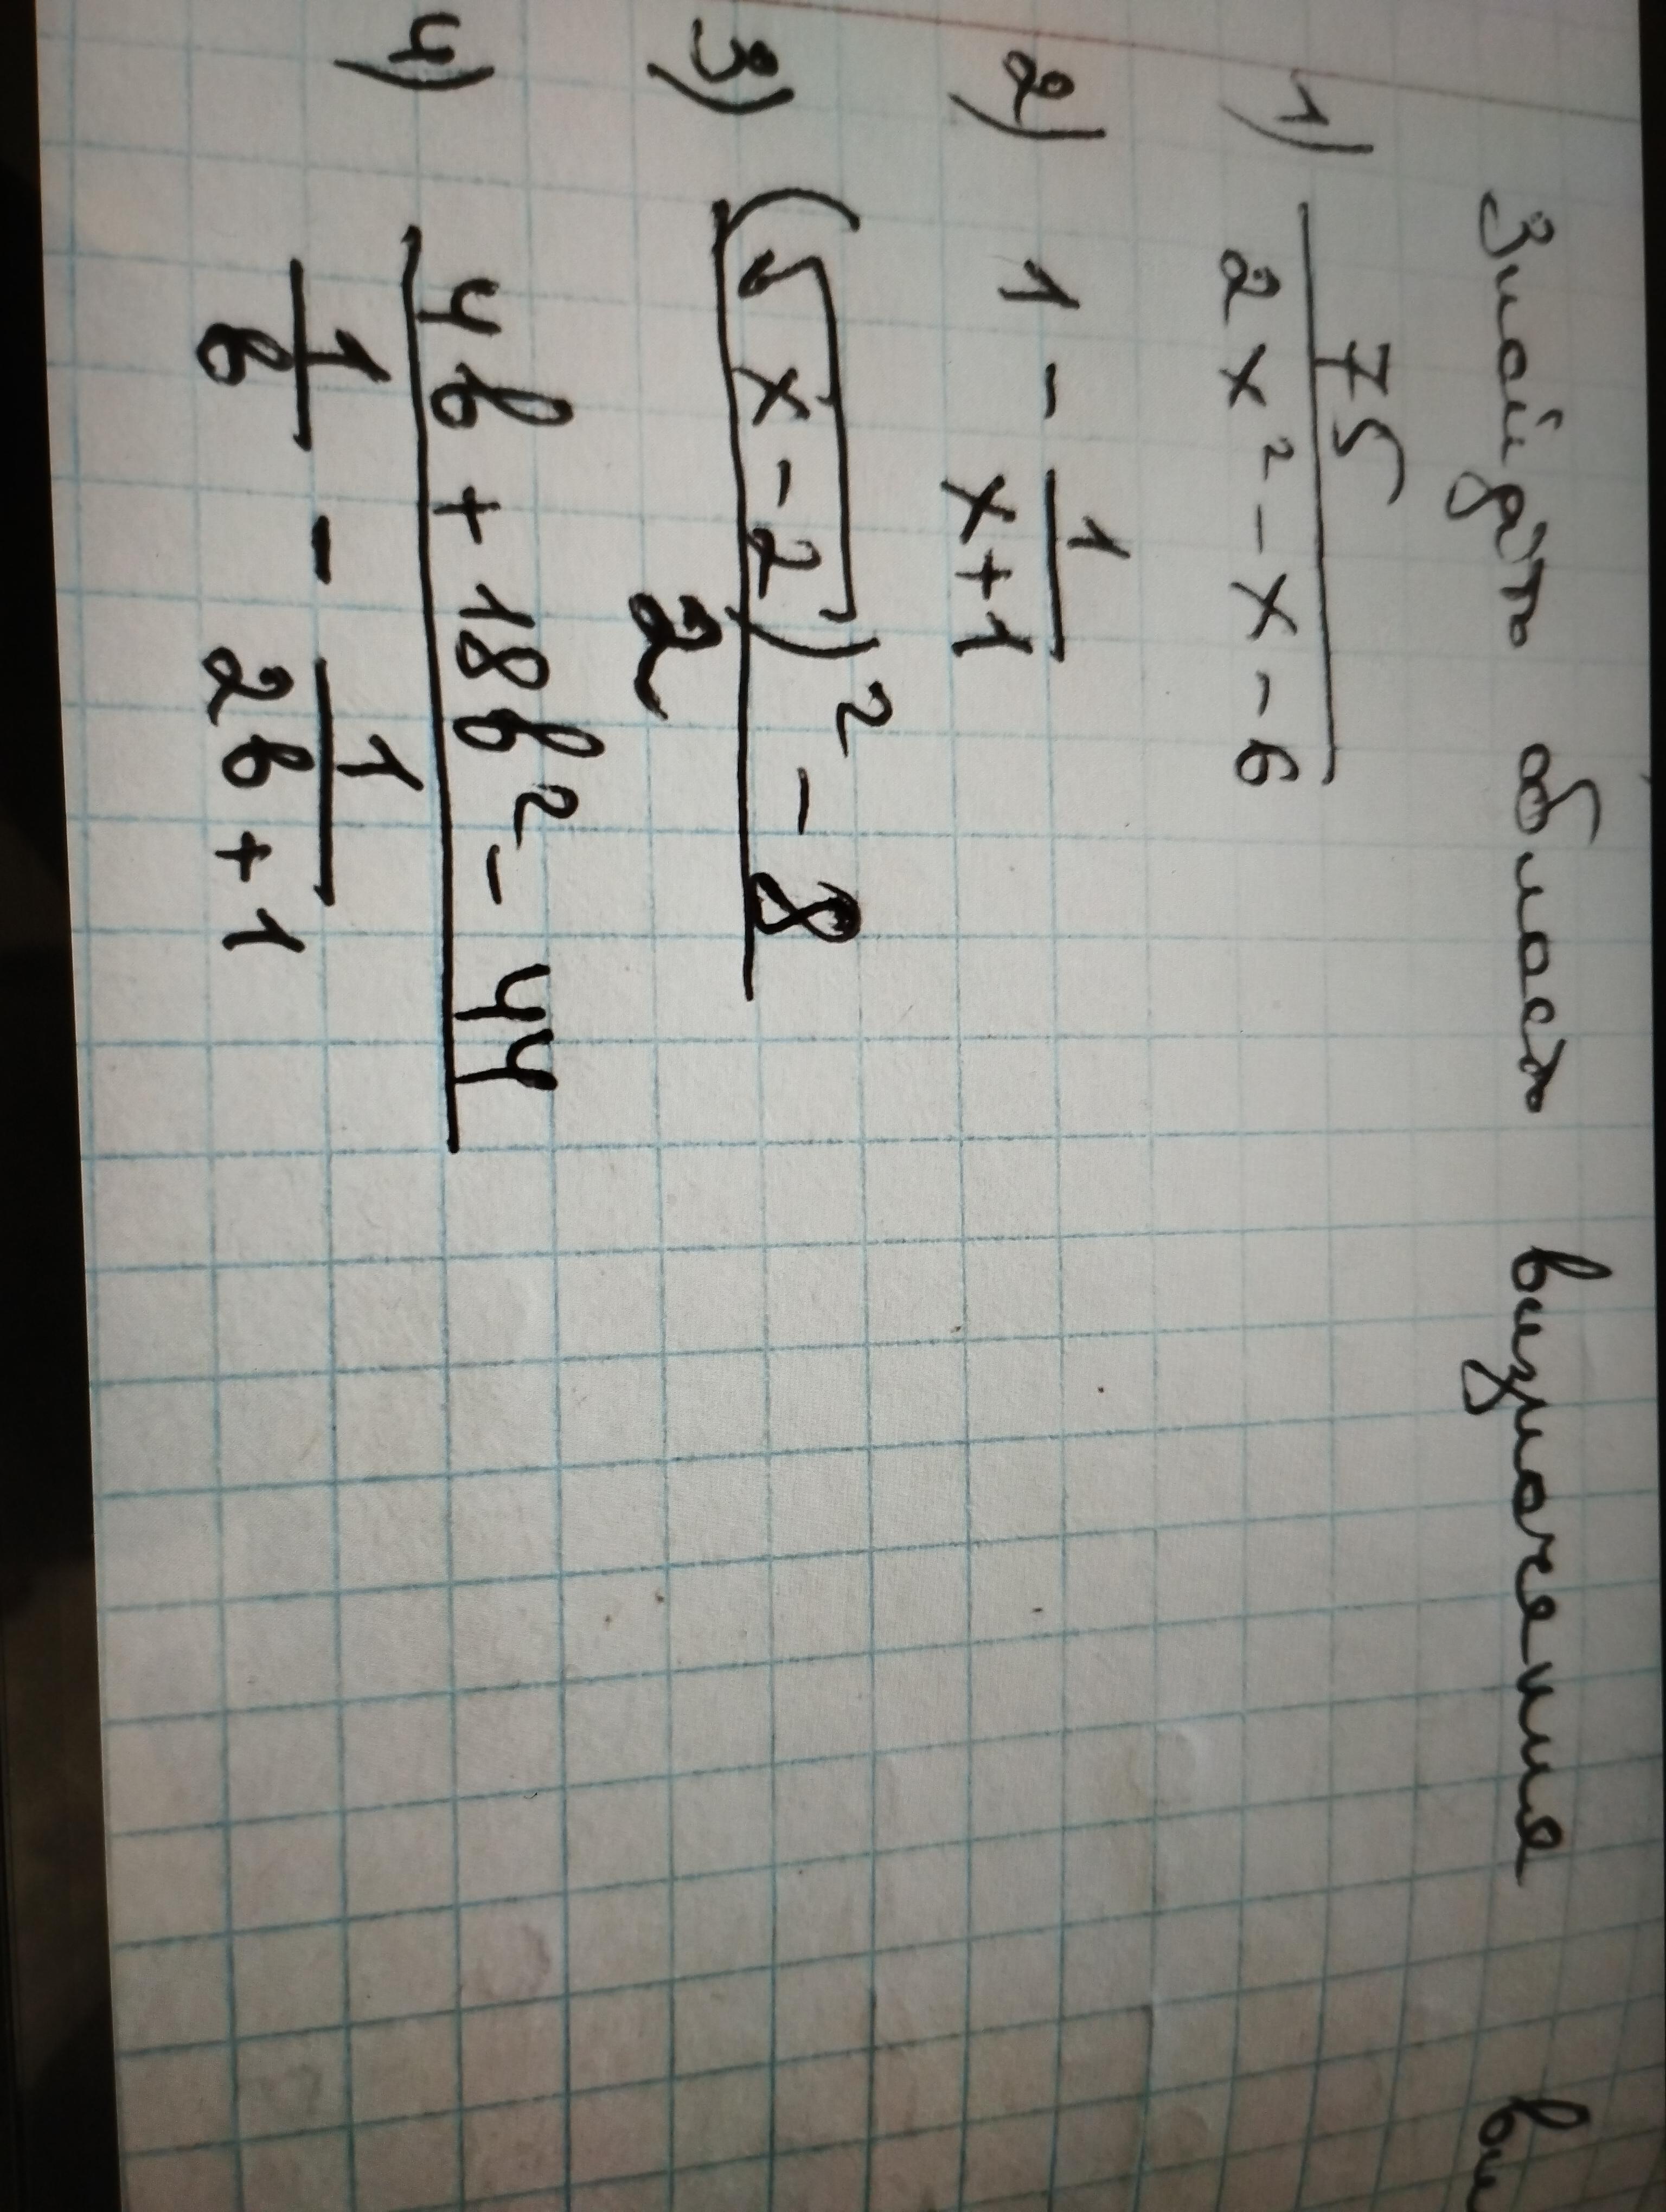 Знайдіть область визначення
1) 75 / (2x² - x - 6)
2) 1 - 1 / (x+1)
3) ((√(x-2))² - 8) / 2
4) (4b + 18b² - 44) / (1/b - 1/(2b+1))